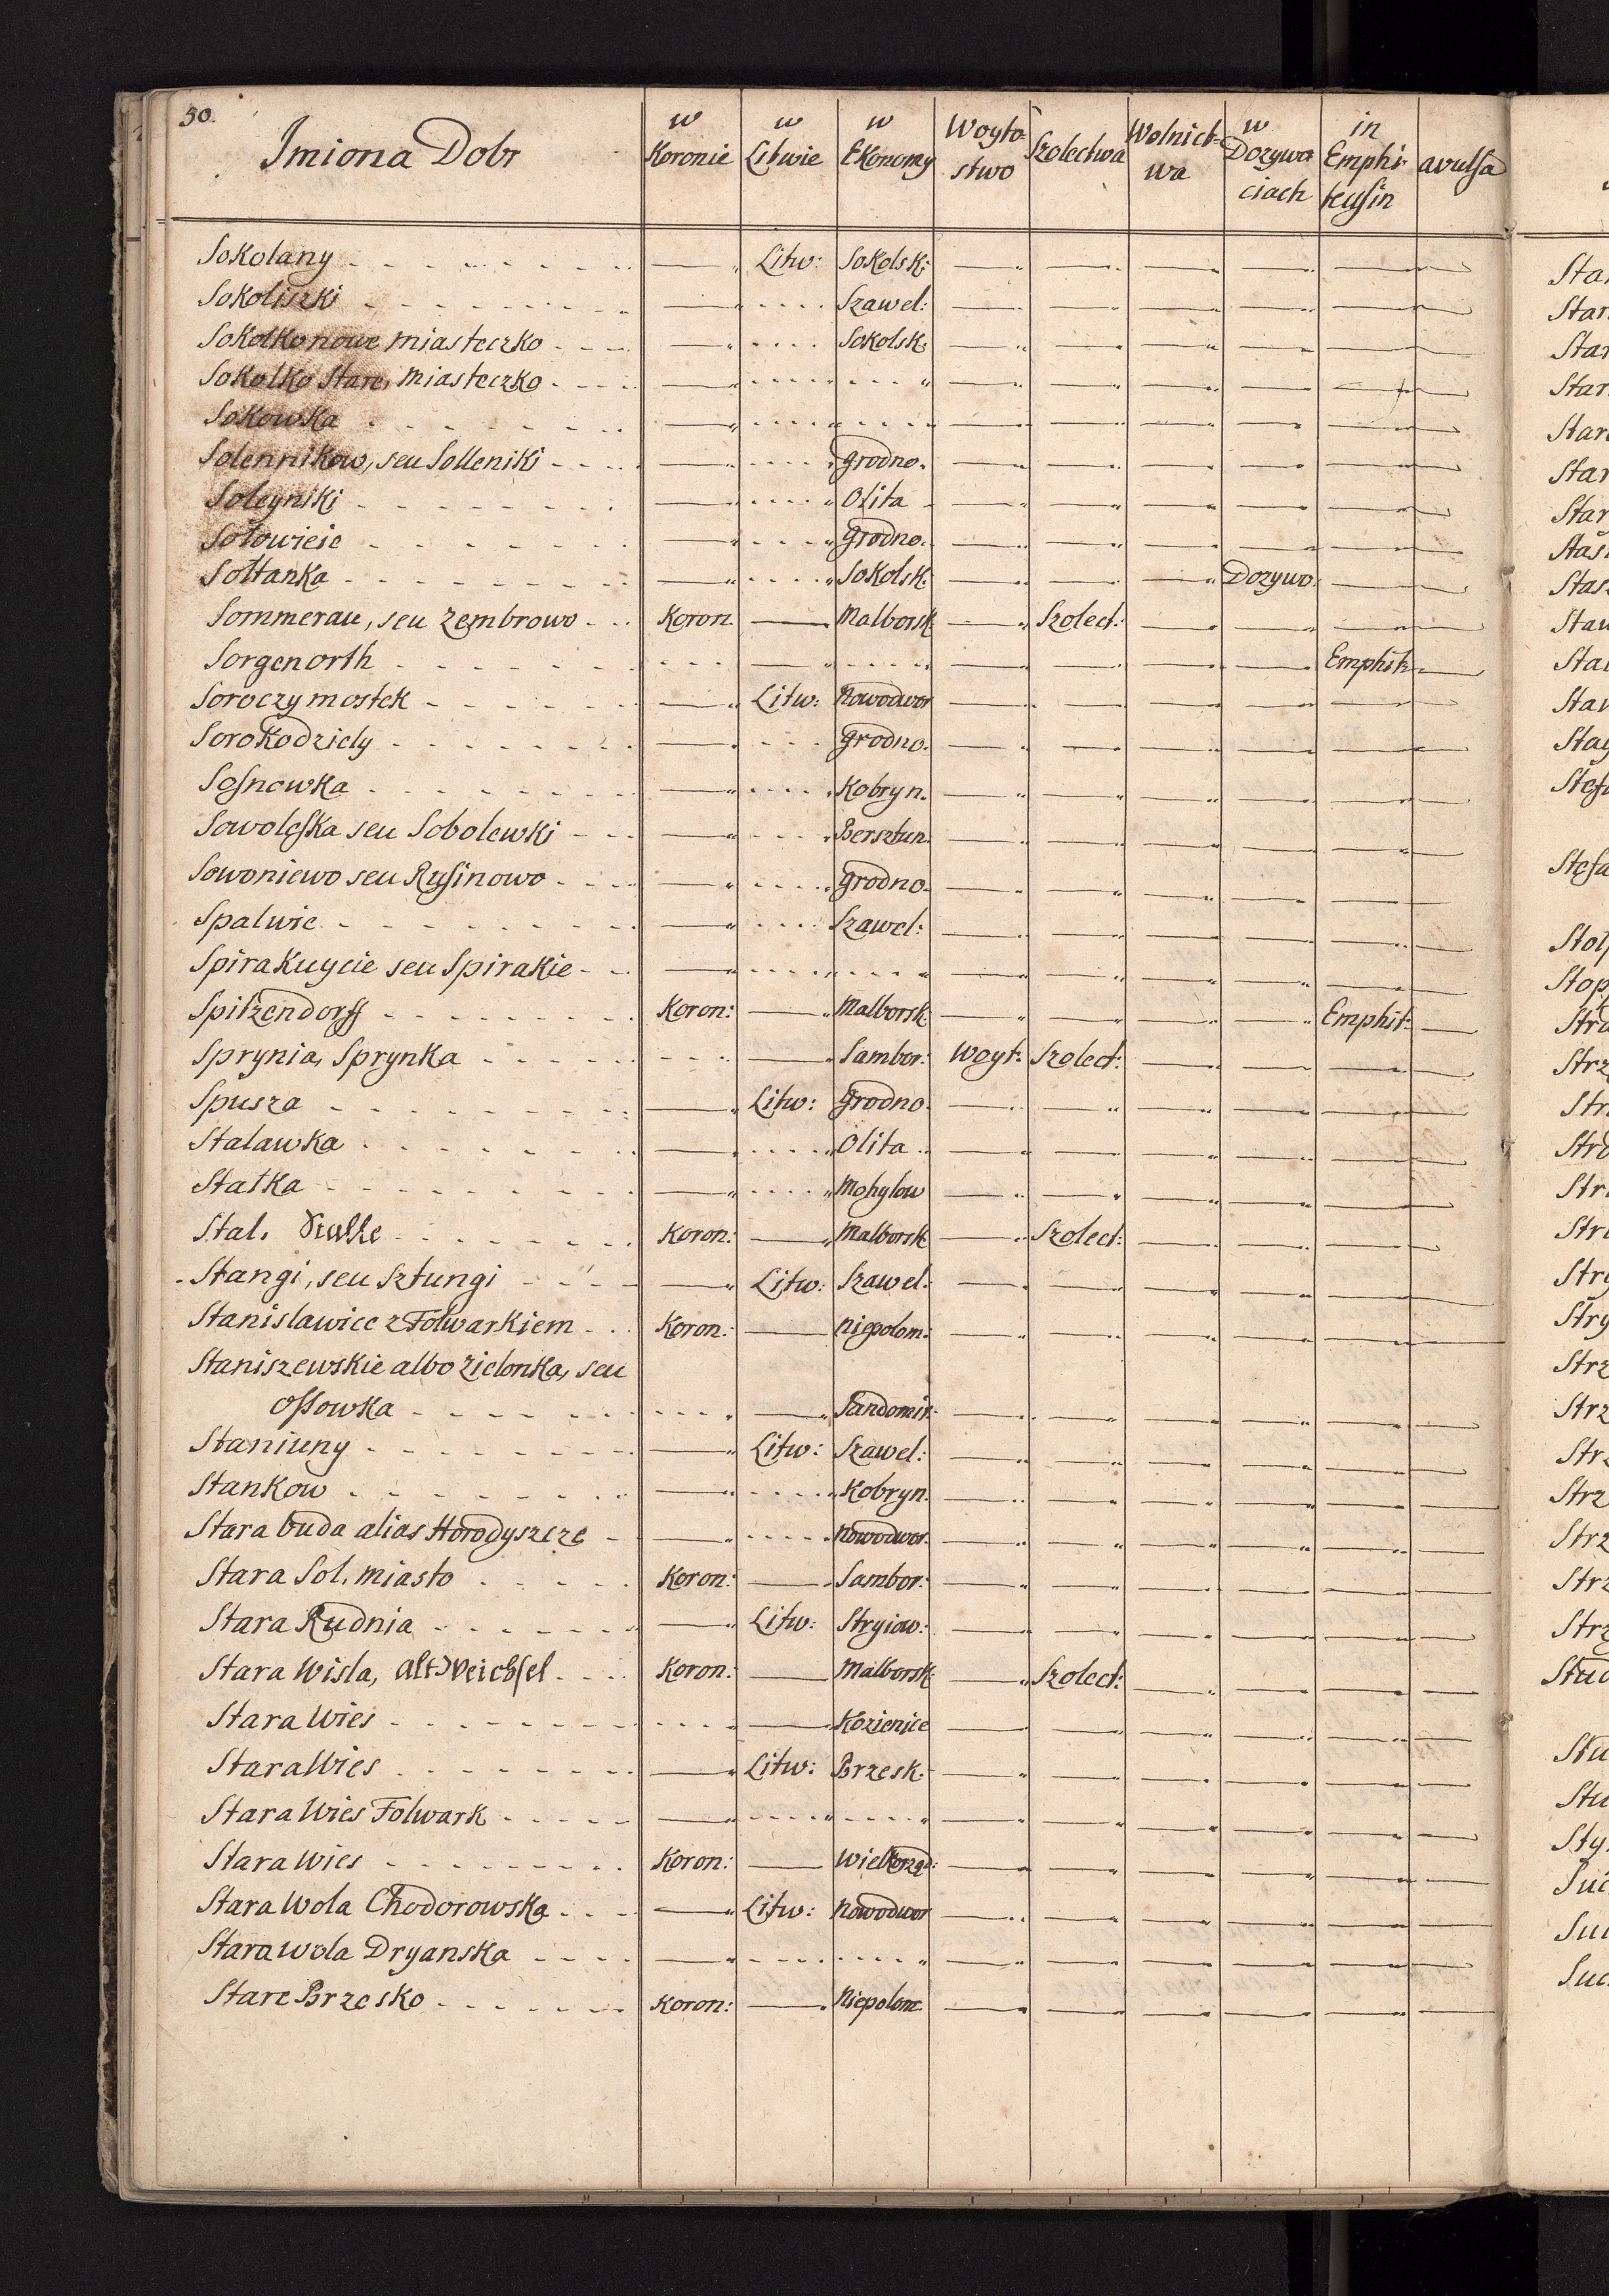 50.
Imiona Dobr | w Koronie | w Litwie | w Ekonomy | Woyto-stwo | Szolectwa | Wolnict-wa | w Dozywociach | in Emphi-teusin | avulsa
Sokolany Litw: Sokolsk:
Sokoliszki Szawel:
Sokolko nowe miasteczko Sokolsk:
Sokolko Stare, Miasteczko
Sokowka
Solennikow, seu Solleniki grodno.
Soleyniki Olita
Sołowieie grodno.
Sołtanka Sokolsk. Dozywo.
Sommerau, seu Zembrowo Koron. Malborsk Szolect:
Sorgenorth Emphit:
Soroczy mostek Litw: Nowodwor
Sorokodziely grodno.
Sosnowka Kobryn.
Sowoleska seu Sobolewki Bersztun.
Sowoniewo seu Rusinowo grodno.
Spalwie Szawel:
Spirakuycie seu Spirakie
Spitzendorff Koron: Malborsk: Emphit:
Sprynia, Sprynka Sambor: Woyt: Szolect:
Spusza Litw: grodno.
Stalawka Olita
Stałka Mohylow
Stal. Koron: Malborsk Szolect:
Stangi, seu Sztungi Litw: Szawel:
Stanislawice z Folwarkiem Koron: Niepolom:
Staniszewskie albo Zielonka, seu
Ossowka Sandomir:
Staniuny Litw: Szawel:
Stankow Kobryn.
Stara buda alias Horodyszcze Nowodwor.
Stara Sol. miasto Koron: Sambor:
Stara Rudnia Litw: Stryiow:
Stara Wisla, Alt Weichsel Koron: Malborsk: Szolect:
Stara Wies Kozienice
Stara Wies Litw: Brzesk:
Stara Wies Folwark
Stara Wies Koron: Wielkorząd:
Stara Wola Chodorowska Litw: Nowodwor
Stara Wola Dryanska
Stare Brzesko Koron: Niepolom